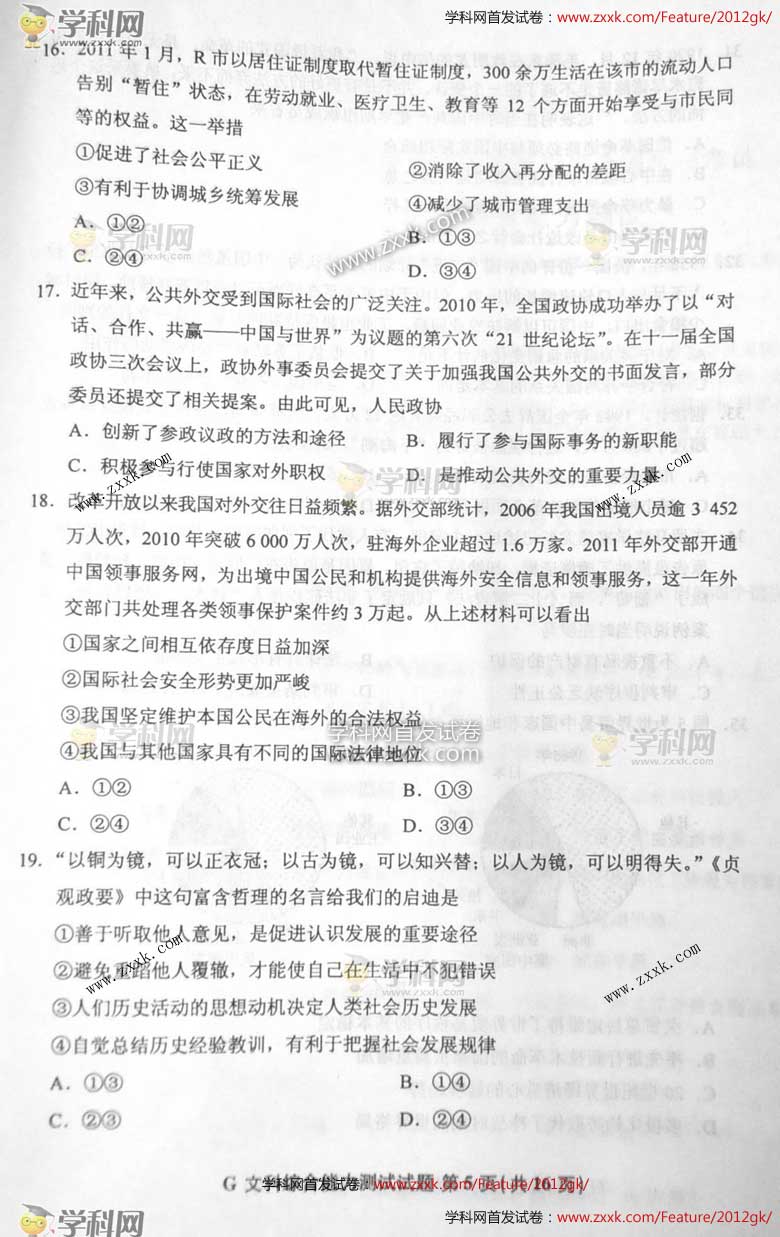 学科网
学科网首发试卷：www.zxxk.com/Feature/2012gk/
16. 2011 年 1 月，R 市以居住证制度取代暂住证制度，300 余万生活在该市的流动人口
告别“暂住”状态，在劳动就业、医疗卫生、教育等 12 个方面开始享受与市民同
等的权益。这一举措
①促进了社会公平正义 ②消除了收入再分配的差距
③有利于协调城乡统筹发展 ④减少了城市管理支出
A. ①② B. ①③
C. ②④ D. ③④
学科网
www.zxxk.com
学科网
17. 近年来，公共外交受到国际社会的广泛关注。2010 年，全国政协成功举办了以“对
话、合作、共赢——中国与世界”为议题的第六次“21 世纪论坛”。在十一届全国
政协三次会议上，政协外事委员会提交了关于加强我国公共外交的书面发言，部分
委员还提交了相关提案。由此可见，人民政协
A. 创新了参政议政的方法和途径 B. 履行了参与国际事务的新职能
C. 积极参与行使国家对外职权 D. 是推动公共外交的重要力量
www.zxxk.com
学科网
www.zxxk.com
18. 改革开放以来我国对外交往日益频繁。据外交部统计，2006 年我国出境人员逾 3 452
万人次，2010 年突破 6 000 万人次，驻海外企业超过 1.6 万家。2011 年外交部开通
中国领事服务网，为出境中国公民和机构提供海外安全信息和领事服务，这一年外
交部门共处理各类领事保护案件约 3 万起。从上述材料可以看出
①国家之间相互依存度日益加深
②国际社会安全形势更加严峻
③我国坚定维护本国公民在海外的合法权益
④我国与其他国家具有不同的国际法律地位
学科网首发试卷
www.zxxk.com
学科网
zxxk.com
A. ①② B. ①③
C. ②④ D. ③④
19. “以铜为镜，可以正衣冠；以古为镜，可以知兴替；以人为镜，可以明得失。”《贞
观政要》中这句富含哲理的名言给我们的启迪是
①善于听取他人意见，是促进认识发展的重要途径
②避免重蹈他人覆辙，才能使自己在生活中不犯错误
③人们历史活动的思想动机决定人类社会历史发展
④自觉总结历史经验教训，有利于把握社会发展规律
www.zxxk.com
学科网
www.zxxk.com
A. ①③ B. ①④
C. ②③ D. ②④
G 文科综合能力测试试题 第 5 页(共 10 页)
学科网首发试卷：www.zxxk.com/Feature/2012gk/
学科网
学科网首发试卷：www.zxxk.com/Feature/2012gk/